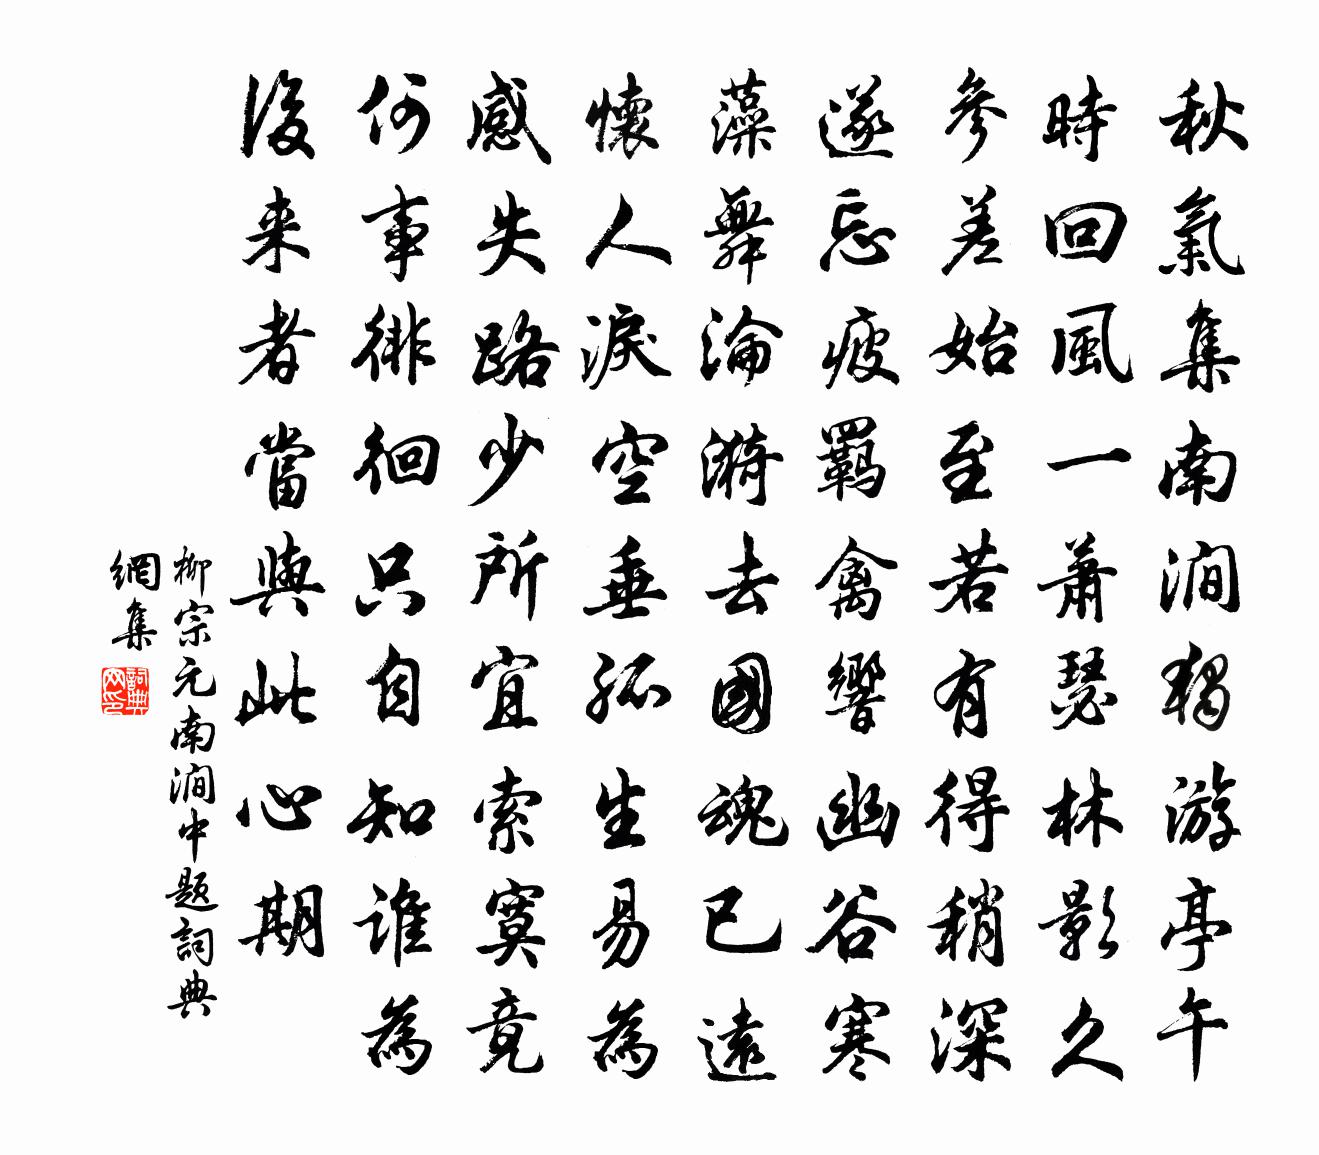 秋氣集南澗獨游亭午
時回風一蕭瑟林影久
參差始至若有得稍深
遂忘疲羈禽響幽谷寒
藻舞淪漪去國魂已遠
懷人淚空垂孤生易為
感失路少所宜索寞竟
何事徘徊只自知誰為
後来者當與此心期
柳宗元南澗中題詞典
網集
詞典
网印